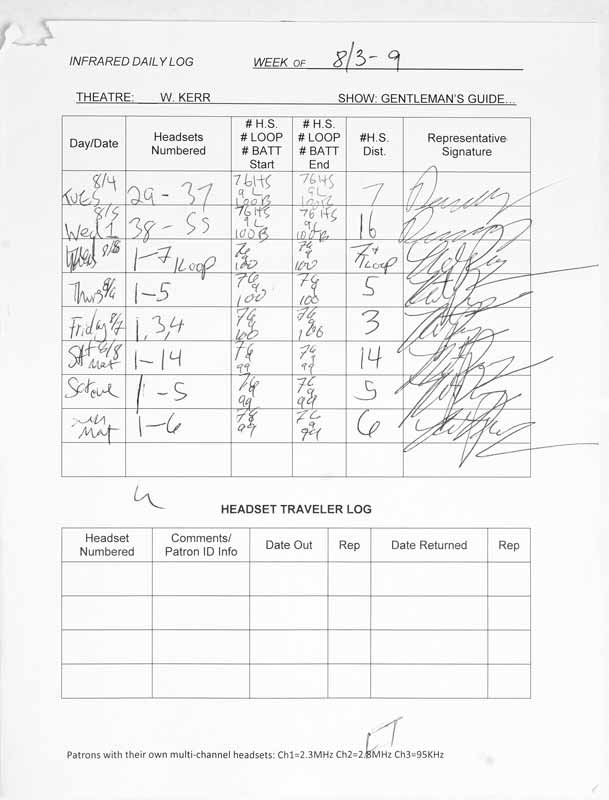 INFRARED DAILY LOG WEEK OF 8/3-9
THEATRE: W. KERR SHOW: GENTLEMAN'S GUIDE...
Day/Date Headsets Numbered # H.S. # LOOP # BATT Start # H.S. # LOOP # BATT End #H.S. Dist. Representative Signature
TUES 8/4 29-37 76HS 9L 100B 76HS 9L 100B 7
Wed 1 8/5 38-55 76HS 9L 100B 76HS 9L 100B 16
1-7 1Loop 76 9 100 76 9 100 7+ 1Loop
Thurs 8/6 1-5 76 9 100 76 9 100 5
Friday 8/7 1,3,4 76 9 100 76 9 100 3
Sat 8/8 Mat 1-14 76 9 99 76 9 99 14
Sat eve 1-5 76 9 99 76 9 99 5
Sun Mat 1-6 76 9 99 76 9 99 6
HEADSET TRAVELER LOG
Headset Numbered Comments/ Patron ID Info Date Out Rep Date Returned Rep
Patrons with their own multi-channel headsets: Ch1=2.3MHz Ch2=2.8MHz Ch3=95KHz